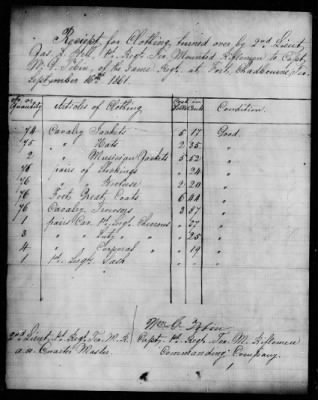 Receipt for Clothing, turned over by 2nd Lieut,
Jas. Hill, 1st Regt. Tex. Mounted Riflemen to Capt,
M. G. Tobin, of the Same Regt. at Fort Chadbourne, Tex.
September 16th 1861.
Quantity Articles of Clothing Cost in Condition.
74 Cavalry Jackets 5 17 Good.
75 " Hats 2 35 "
2 " Musician Jackets 5 52 "
76 pairs of Stockings " 24 "
76 " " Bootees 2 20 "
76 Foot Great Coats 6 44 "
76 Cavalry Trousers 3 "
1 pairs Cav. 1st Sergt. Chevrons " "
3 " " " " 25 "
4 " " Corporal " " 19 "
1 1st Sergt. Sash "
Wm. G. Tobin
2nd Lieut, 1st Regt. Tex. M. R. Capt, 1st Regt. Tex. M. Riflemen
a.a. Quarter Master. Commanding Company.